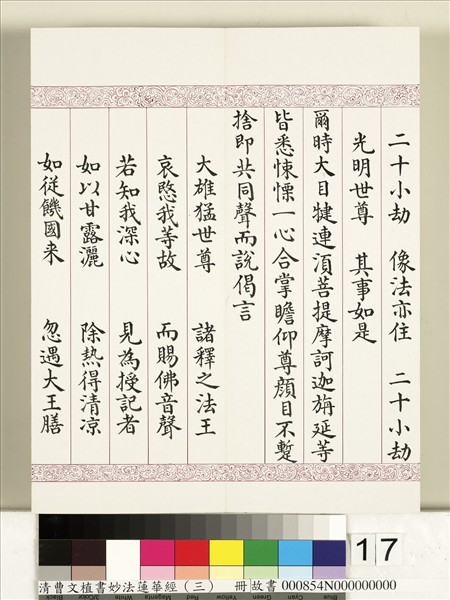 二十小劫　像法亦住　二十小劫
光明世尊　其事如是
爾時大目揵連湏菩提摩訶迦旃延等
皆悉悚慄一心合掌瞻仰尊顏目不蹔
捨即共同聲而說偈言
大雄猛世尊　諸釋之法王
哀愍我等故　而賜佛音聲
若知我深心　見為授記者
如以甘露灑　除热得清凉
如從饑國来　忽遇大王膳
17
清曹文植書妙法蓮華經（三）　冊 故書 000854N000000000